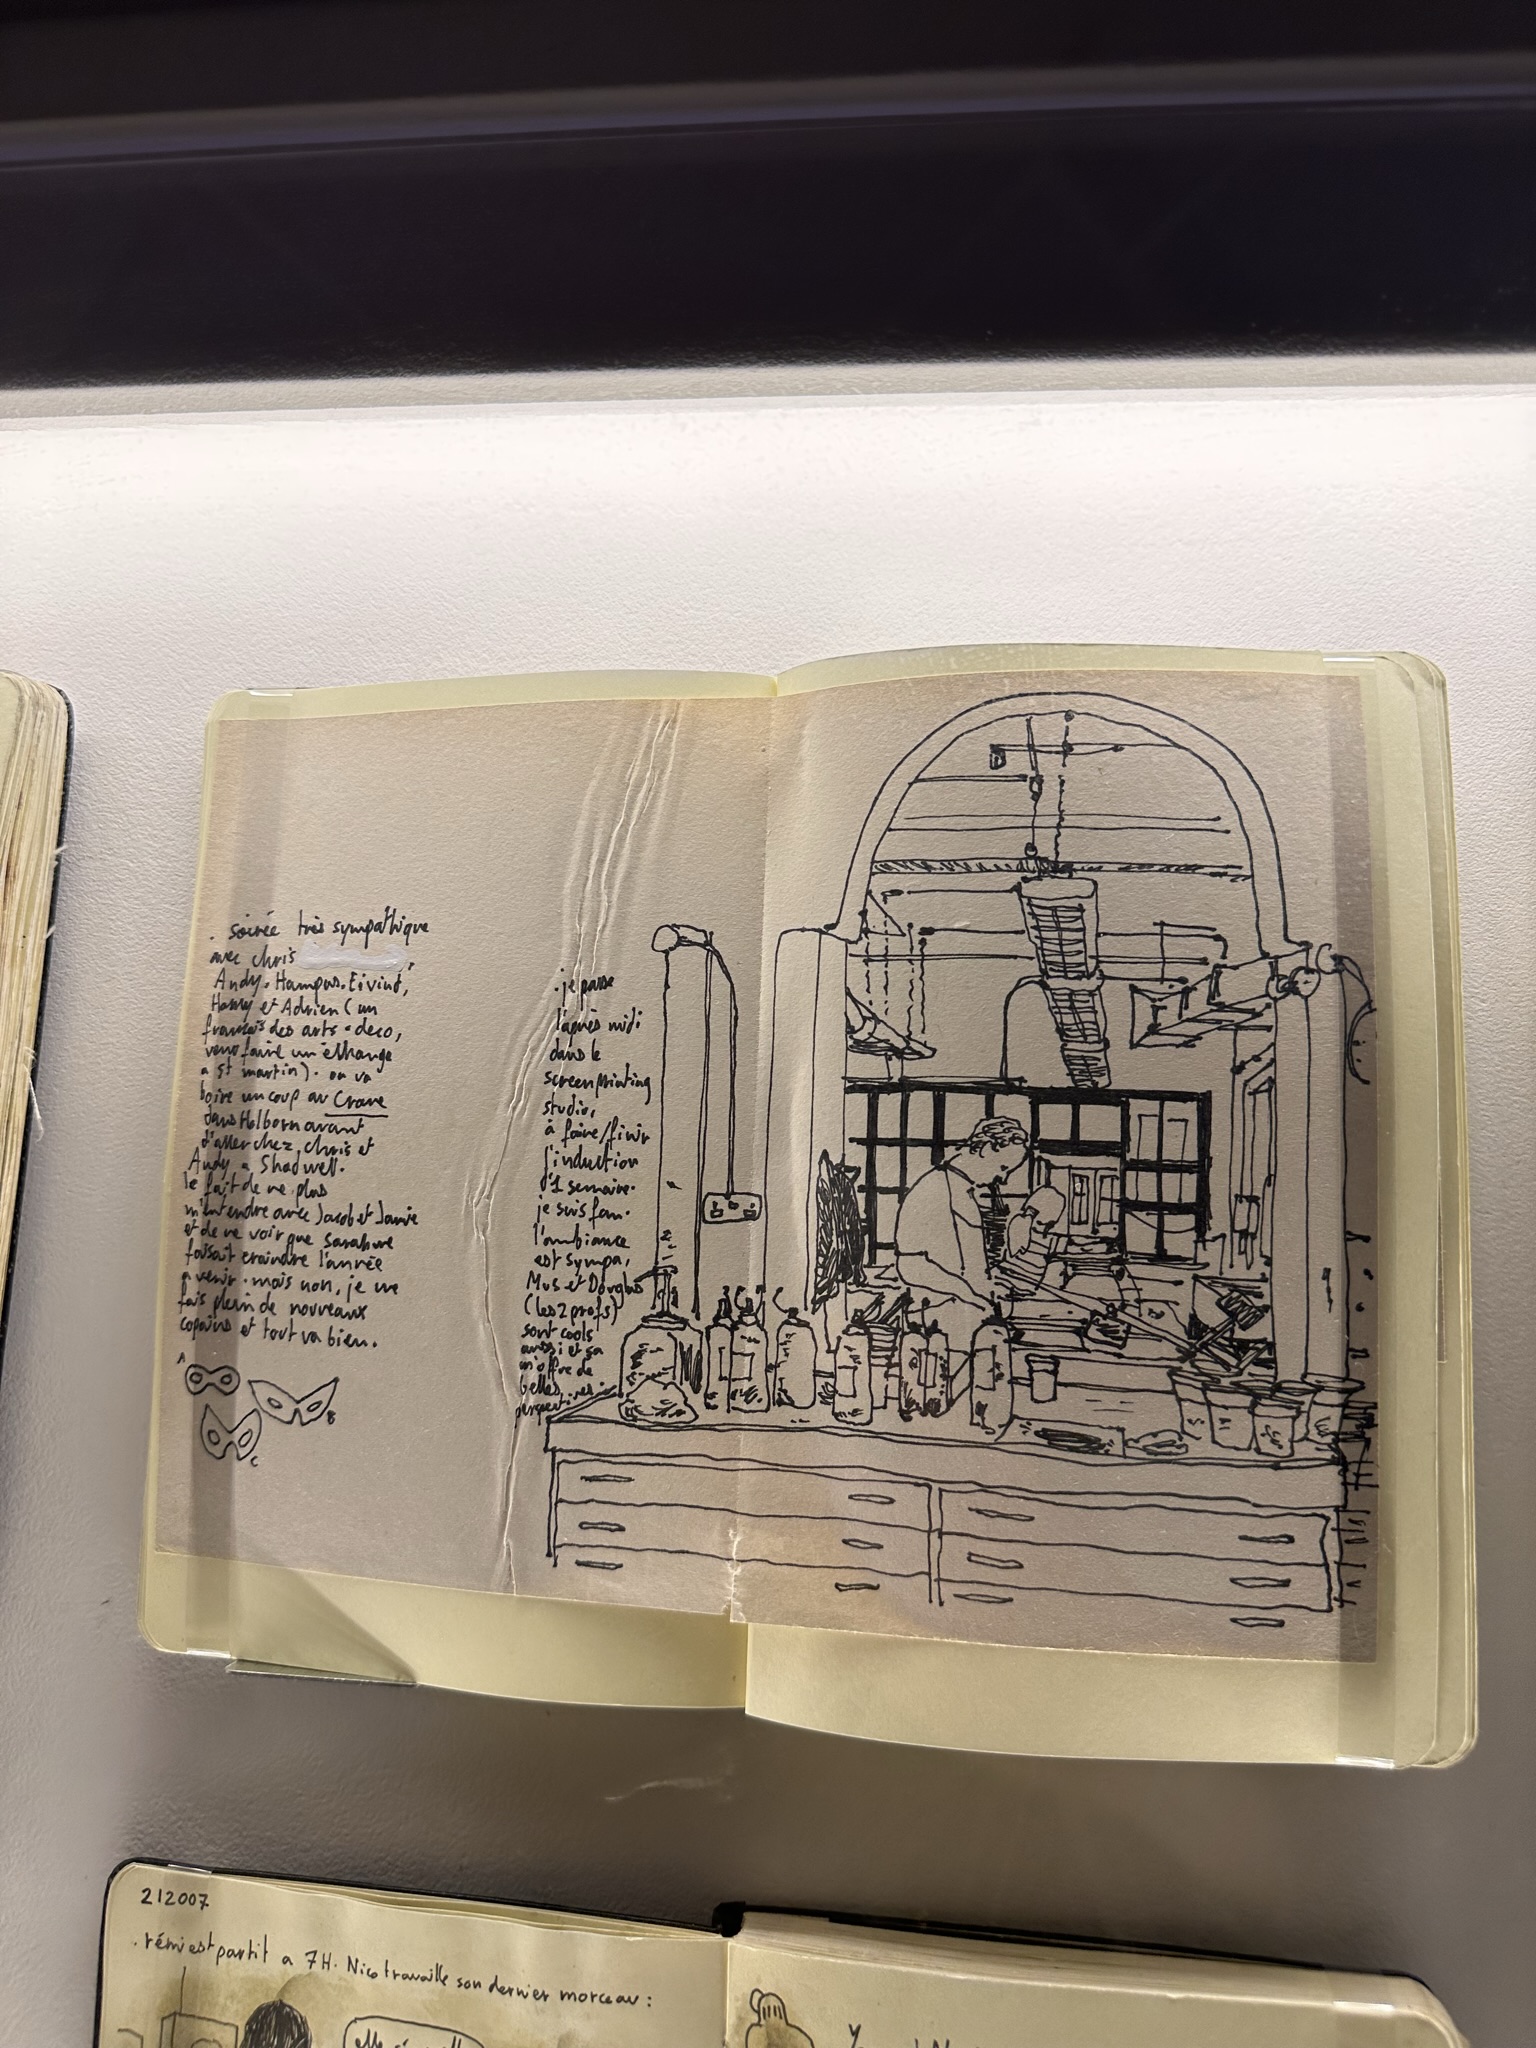 . soirée très sympathique
avec chris
Andy. Hampus. Eivind,
Harry et Adrien (un
français des arts-deco,
venu faire un échange
a St martin). on va
boire un coup au Crane
dans Holborn avant
d'aller chez chris et
Andy a Shadwell.
le fait de ne plus
m'entendre avec Jacob et Jamie
et de ne voir que Sarah me
faisait craindre l'année
a venir. mais non, je me
fais plein de nouveaux
copains et tout va bien.
A
B
C
. je passe
l'après midi
dans le
screenprinting
studio,
à faire/finir
l'induction
d'1 semaine.
je suis fan.
l'ambiance
est sympa,
Mus et Douglas
(les 2 profs)
sont cools
aussi et ça
m'offre de
belles
212007
. rémi est partit a 7H. Nico travaille son dernier morceau :